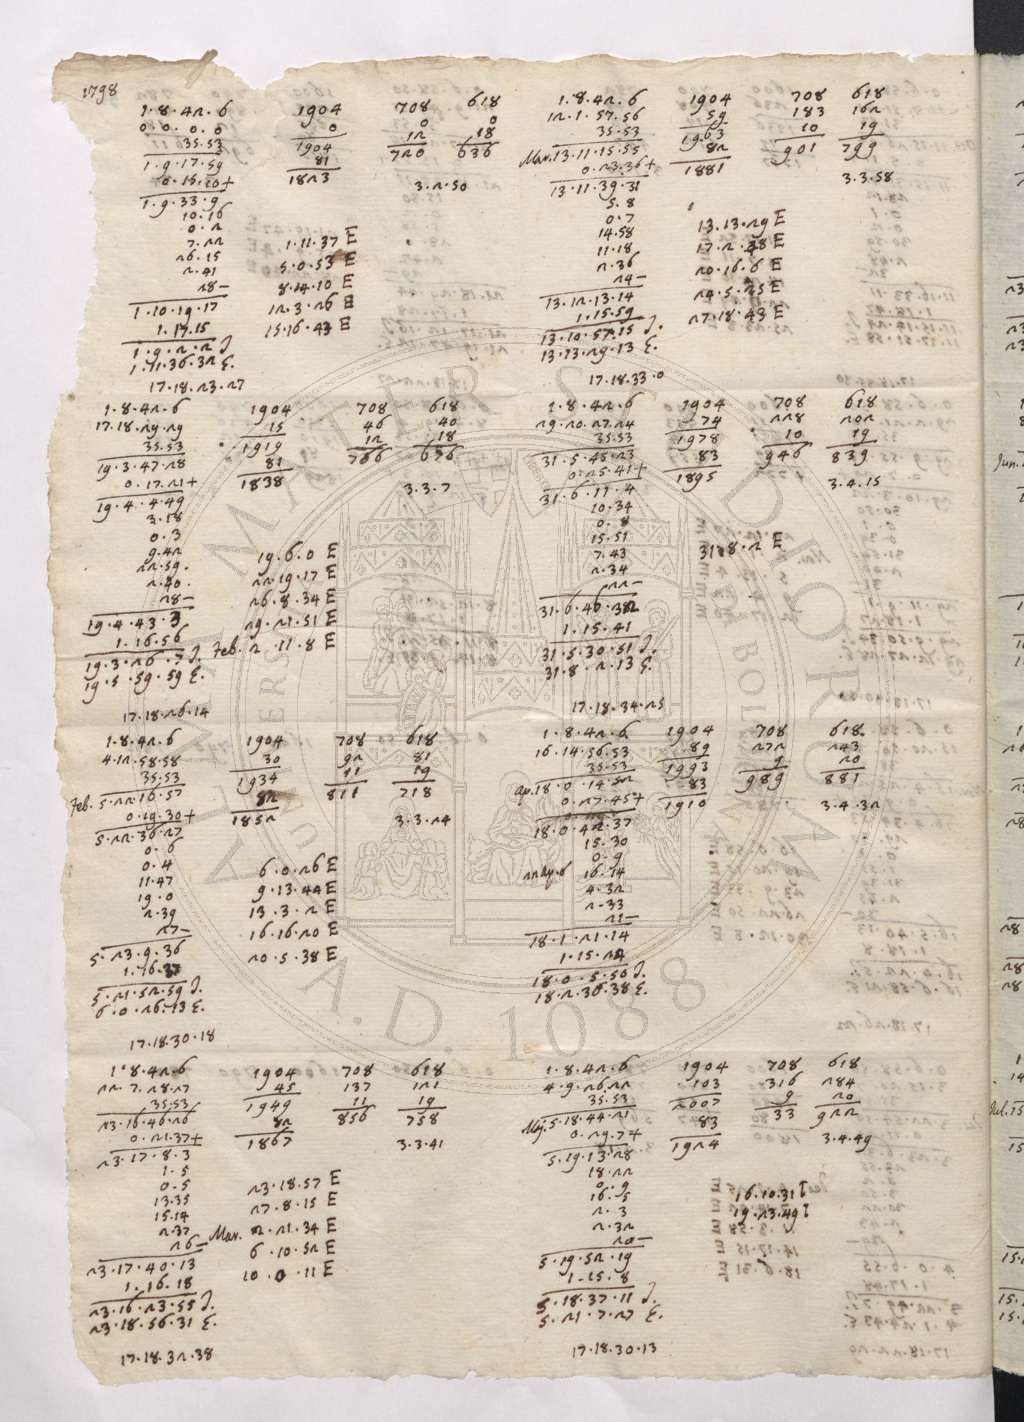 1798
1.8.42.6
0.0.0.0
35.53
1.9.17.59
0.15.10+
1.9.33.9
10.16
0.2
7.22
26.15
2.41
28-
1.10.19.17
1.17.15
1.9.2.2 I.
1.11.36.32 E.
17.18.23.27
1904
0
1904
81
1823
708
0
12
720
618
0
18
636
3.2.50
1.11.37 E
5.0.53 E
8.14.10 E
12.3.26 E
15.16.43 E
1.8.42.6
17.18.29.29
35.53
19.3.47.28
0.17.21+
19.4.4.49
3.18
0.3
9.42
22.59.
2.40.
28-
19.4.43.3
1.16.56
19.3.26.7 I.
19.5.59.59 E.
17.18.26.14
1904
15
1919
81
1838
708
46
12
766
618
40
18
676
3.3.7
19.6.0 E
22.19.17 E
26.8.34 E
29.21.51 E
Feb. 2.11.8 E
1.8.42.6
4.12.58.58
35.53
Feb. 5.22.16.57
0.19.30+
5.22.36.27
0.6
0.4
11.47
19.0
2.39
27-
5.23.9.36
1.16.37
5.21.52.59 I.
6.0.26.13 E.
17.18.30.18
1904
30
1934
82
1852
708
92
11
811
618
81
19
718
3.3.24
6.0.26 E
9.13.44 E
13.3.2 E
16.16.20 E
20.5.38 E
1.8.42.6
22.7.28.27
35.53
23.16.46.26
0.21.37+
23.17.8.3
1.5
0.5
13.35
15.14
2.37
26-
23.17.40.13
1.16.18
23.16.23.55 I.
23.18.56.31 E.
17.18.32.38
1904
45
1949
82
1867
708
137
11
856
618
121
19
758
3.3.41
23.18.57 E
27.8.15 E
Mar. 2.21.34 E
6.10.52 E
10.0.11 E
1.8.42.6
12.1.57.56
35.53
Mar. 13.11.15.55
0.23.36+
13.11.39.31
5.8
0.7
14.58
11.18
2.36
24-
13.12.13.14
1.15.59
13.10.57.15 I.
13.13.29.13 E.
17.18.33.0
1904
59
1963
82
1881
708
183
10
901
618
162
19
799
3.3.58
13.13.29 E
17.2.48 E
20.16.6 E
24.5.25 E
27.18.43 E
1.8.42.6
29.20.27.24
35.53
31.5.45.23
0.25.41+
31.6.11.4
10.34
0.8
15.51
7.43
2.34
22-
31.6.46.32
1.15.41
31.5.30.51 I.
31.8.2.13 E.
17.18.34.25
1904
74
1978
83
1895
708
228
10
946
618
202
19
839
3.4.15
31.8.2 E
1.8.42.6
16.14.56.53
35.53
Ap. 18.0.14.52
0.27.45+
18.0.42.37
15.30
0.9
16.14
4.32
2.33
21-
18.1.21.14
1.15.24
18.0.5.50 I.
18.2.36.38 E.
1904
89
1993
83
1910
708
272
9
989
618
243
20
881
3.4.32
1.8.42.6
4.9.26.22
35.53
Maj. 5.18.44.21
0.29.7+
5.19.13.28
18.22
0.9
16.5
2.3
2.32
20-
5.19.52.19
1.15.8
5.18.37.11 I.
5.21.7.27 E.
17.18.30.13
1904
103
2007
83
1924
708
316
9
33
618
284
20
922
3.4.49
16.10.31 I
19.23.49 I
ALMA MATER STUDIORUM
A.D. 1088